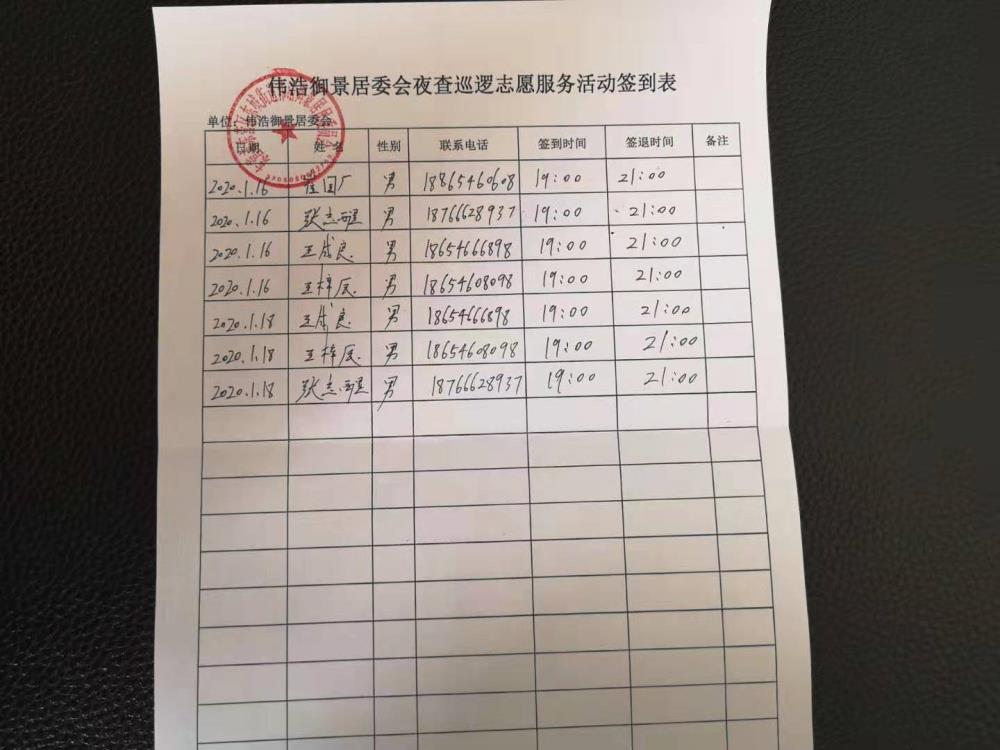 伟浩御景居委会夜查巡逻志愿服务活动签到表
单位：伟浩御景居委会
日期 姓名 性别 联系电话 签到时间 签退时间 备注
2020.1.16 崔国厂 男 18865460608 19:00 21:00
2020.1.16 张志强 男 18766628937 19:00 21:00
2020.1.16 王成良 男 18654666898 19:00 21:00
2020.1.16 王梓辰 男 18654608098 19:00 21:00
2020.1.18 王成良 男 18654666898 19:00 21:00
2020.1.18 王梓辰 男 18654608098 19:00 21:00
2020.1.18 张志强 男 18766628937 19:00 21:00